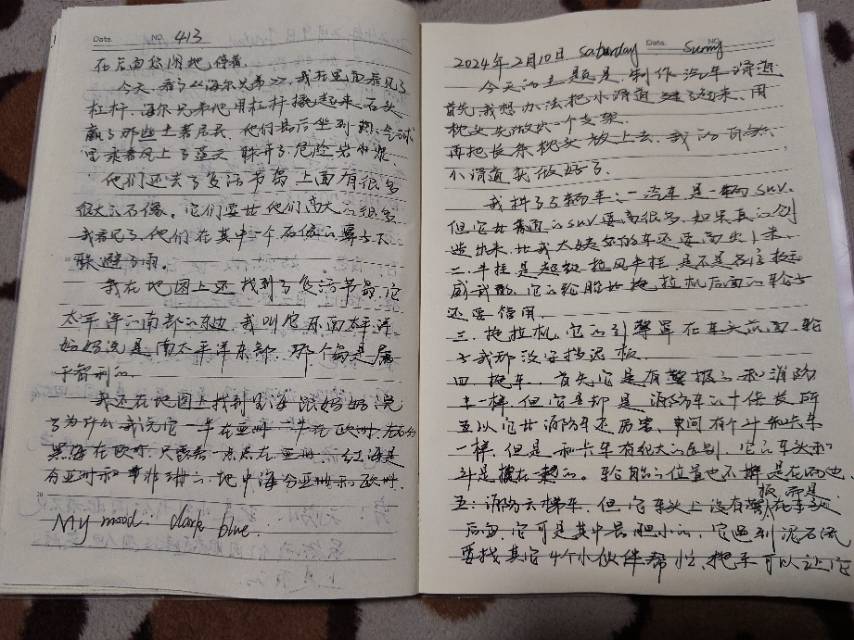 Date. NO. 413
在后面悠闲地停着.
今天.看了《海尔兄弟》,我在里面看见了
杠杆.海尔兄弟他用杠杆撬起来石头
赢了那些土著居民.他们最后坐到热气球
里乘着风上了蓝天 躲开了危险岩浆
他们还去了复活节岛 上面有很多
很大的石像。它们要比他们高大的很多
我看见了他们在其中一个石像的鼻子下
躲避了雨。
我在地图上还找到了复活节岛,它
太平洋的南部的东边,我叫它东南太平洋
妈妈说是南太平洋东部.那个岛是属
于智利的.
我还在地图上找到黑海 跟妈妈说
了为什么我说它一半在亚洲一半在欧洲.
黑海在欧洲.只要有一点点在亚洲.红海是
分亚洲和非洲的.地中海分亚洲和欧洲.
My mood: dark blue.
2024年2月10日 Saturday Date. Sunny NO.
今天的主题是.制作汽车滑道
首先我想办法把小滑道建了起来.用
枕头先做出一个支架.
再把长条枕头放上去.我的
小滑道就做好了.
我拼了5辆车:一汽车是一辆SUV.
但它比普通的SUV要高很多.如果真的创
造出来.比我大姨的车还要高出1米.
二.半挂是超级拉风半挂.是不是名字
威武.它的轮胎比拖拉机后面的轮子
还要管用.
三.拖拉机.它的引擎罩在车头前面.轮
子我都没安挡泥板.
四.拖车.首先它是有警报的和消防
车一样.但它是却是消防车的十倍长所
以它比消防车还厉害.中间有个斗和卡车
一样.但是和卡车有很大的区别.它的车头和
斗是接在一起的.轮胎的位置也不一样是在两边.
五:消防云梯车.但它车头上没有警报而是在车
后面.它可是其中最胆小的.它遇到泥石流
要找其它4个小伙伴帮忙.把手可以让它